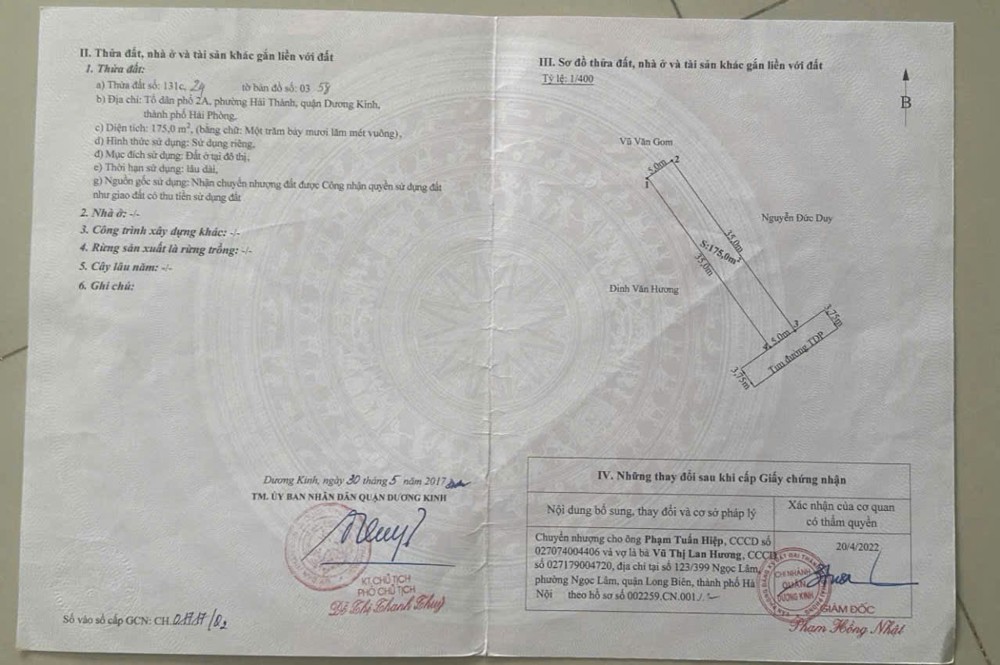 II. Thửa đất, nhà ở và tài sản khác gắn liền với đất
1. Thửa đất:
a) Thửa đất số: 131c, 24 tờ bản đồ số: 03 58
b) Địa chỉ: Tổ dân phố 2A, phường Hải Thành, quận Dương Kinh,
thành phố Hải Phòng,
c) Diện tích: 175,0 m², (bằng chữ: Một trăm bảy mươi lăm mét vuông),
d) Hình thức sử dụng: Sử dụng riêng,
đ) Mục đích sử dụng: Đất ở tại đô thị,
e) Thời hạn sử dụng: lâu dài,
g) Nguồn gốc sử dụng: Nhận chuyển nhượng đất được Công nhận quyền sử dụng đất
như giao đất có thu tiền sử dụng đất
2. Nhà ở: -/-
3. Công trình xây dựng khác: -/-
4. Rừng sản xuất là rừng trồng: -/-
5. Cây lâu năm: -/-
6. Ghi chú:
Dương Kinh, ngày 30 tháng 5 năm 2017
TM. ỦY BAN NHÂN DÂN QUẬN DƯƠNG KINH
KT. CHỦ TỊCH
PHÓ CHỦ TỊCH
Đỗ Thị Thanh Thuỷ
Số vào sổ cấp GCN: CH
III. Sơ đồ thửa đất, nhà ở và tài sản khác gắn liền với đất
Tỷ lệ: 1/400
B
Vũ Văn Gom
5.0m
2
1
Nguyễn Đức Duy
35.0m
S:175,0m²
35.0m
Đinh Văn Hương
3,75m
3
5.0m
4
Tim đường TDP
3,75m
IV. Những thay đổi sau khi cấp Giấy chứng nhận
Nội dung bổ sung, thay đổi và cơ sở pháp lý
Xác nhận của cơ quan
có thẩm quyền
Chuyển nhượng cho ông Phạm Tuấn Hiệp, CCCD số
027074004406 và vợ là bà Vũ Thị Lan Hương, CCCD
số 027179004720, địa chỉ tại số 123/399 Ngọc Lâm,
phường Ngọc Lâm, quận Long Biên, thành phố Hà
Nội theo hồ sơ số 002259.CN.001./.
20/4/2022
CHI NHÁNH
QUẬN
DƯƠNG KINH
GIÁM ĐỐC
Phạm Hồng Nhật